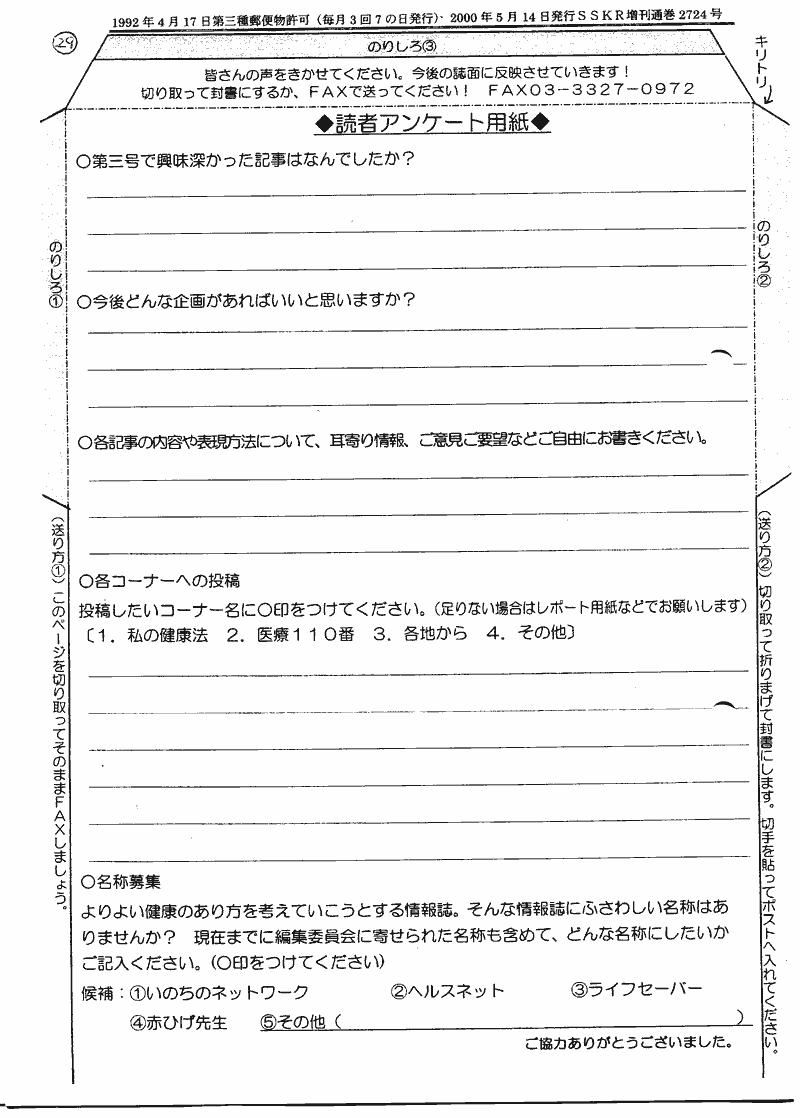 1992年4月17日第三種郵便物許可（毎月3回7の日発行）・2000年5月14日発行ＳＳＫＲ増刊通巻2724号
29
のりしろ③
キリトリ
皆さんの声をきかせてください。今後の誌面に反映させていきます！
切り取って封書にするか、ＦＡＸで送ってください！　ＦＡＸ０３－３３２７－０９７２
◆読者アンケート用紙◆
○第三号で興味深かった記事はなんでしたか？
のりしろ①
のりしろ②
○今後どんな企画があればいいと思いますか？
○各記事の内容や表現方法について、耳寄り情報、ご意見ご要望などご自由にお書きください。
（送り方①）このページを切り取ってそのままＦＡＸしましょう。
（送り方②）切り取って折りまげて封書にします。切手を貼ってポストへ入れてください。
○各コーナーへの投稿
投稿したいコーナー名に○印をつけてください。（足りない場合はレポート用紙などでお願いします）
〔１．私の健康法　２．医療１１０番　３．各地から　４．その他〕
○名称募集
よりよい健康のあり方を考えていこうとする情報誌。そんな情報誌にふさわしい名称はあ
りませんか？　現在までに編集委員会に寄せられた名称も含めて、どんな名称にしたいか
ご記入ください。（○印をつけてください）
候補：①いのちのネットワーク　②ヘルスネット　③ライフセーバー
④赤ひげ先生　⑤その他（　）
ご協力ありがとうございました。